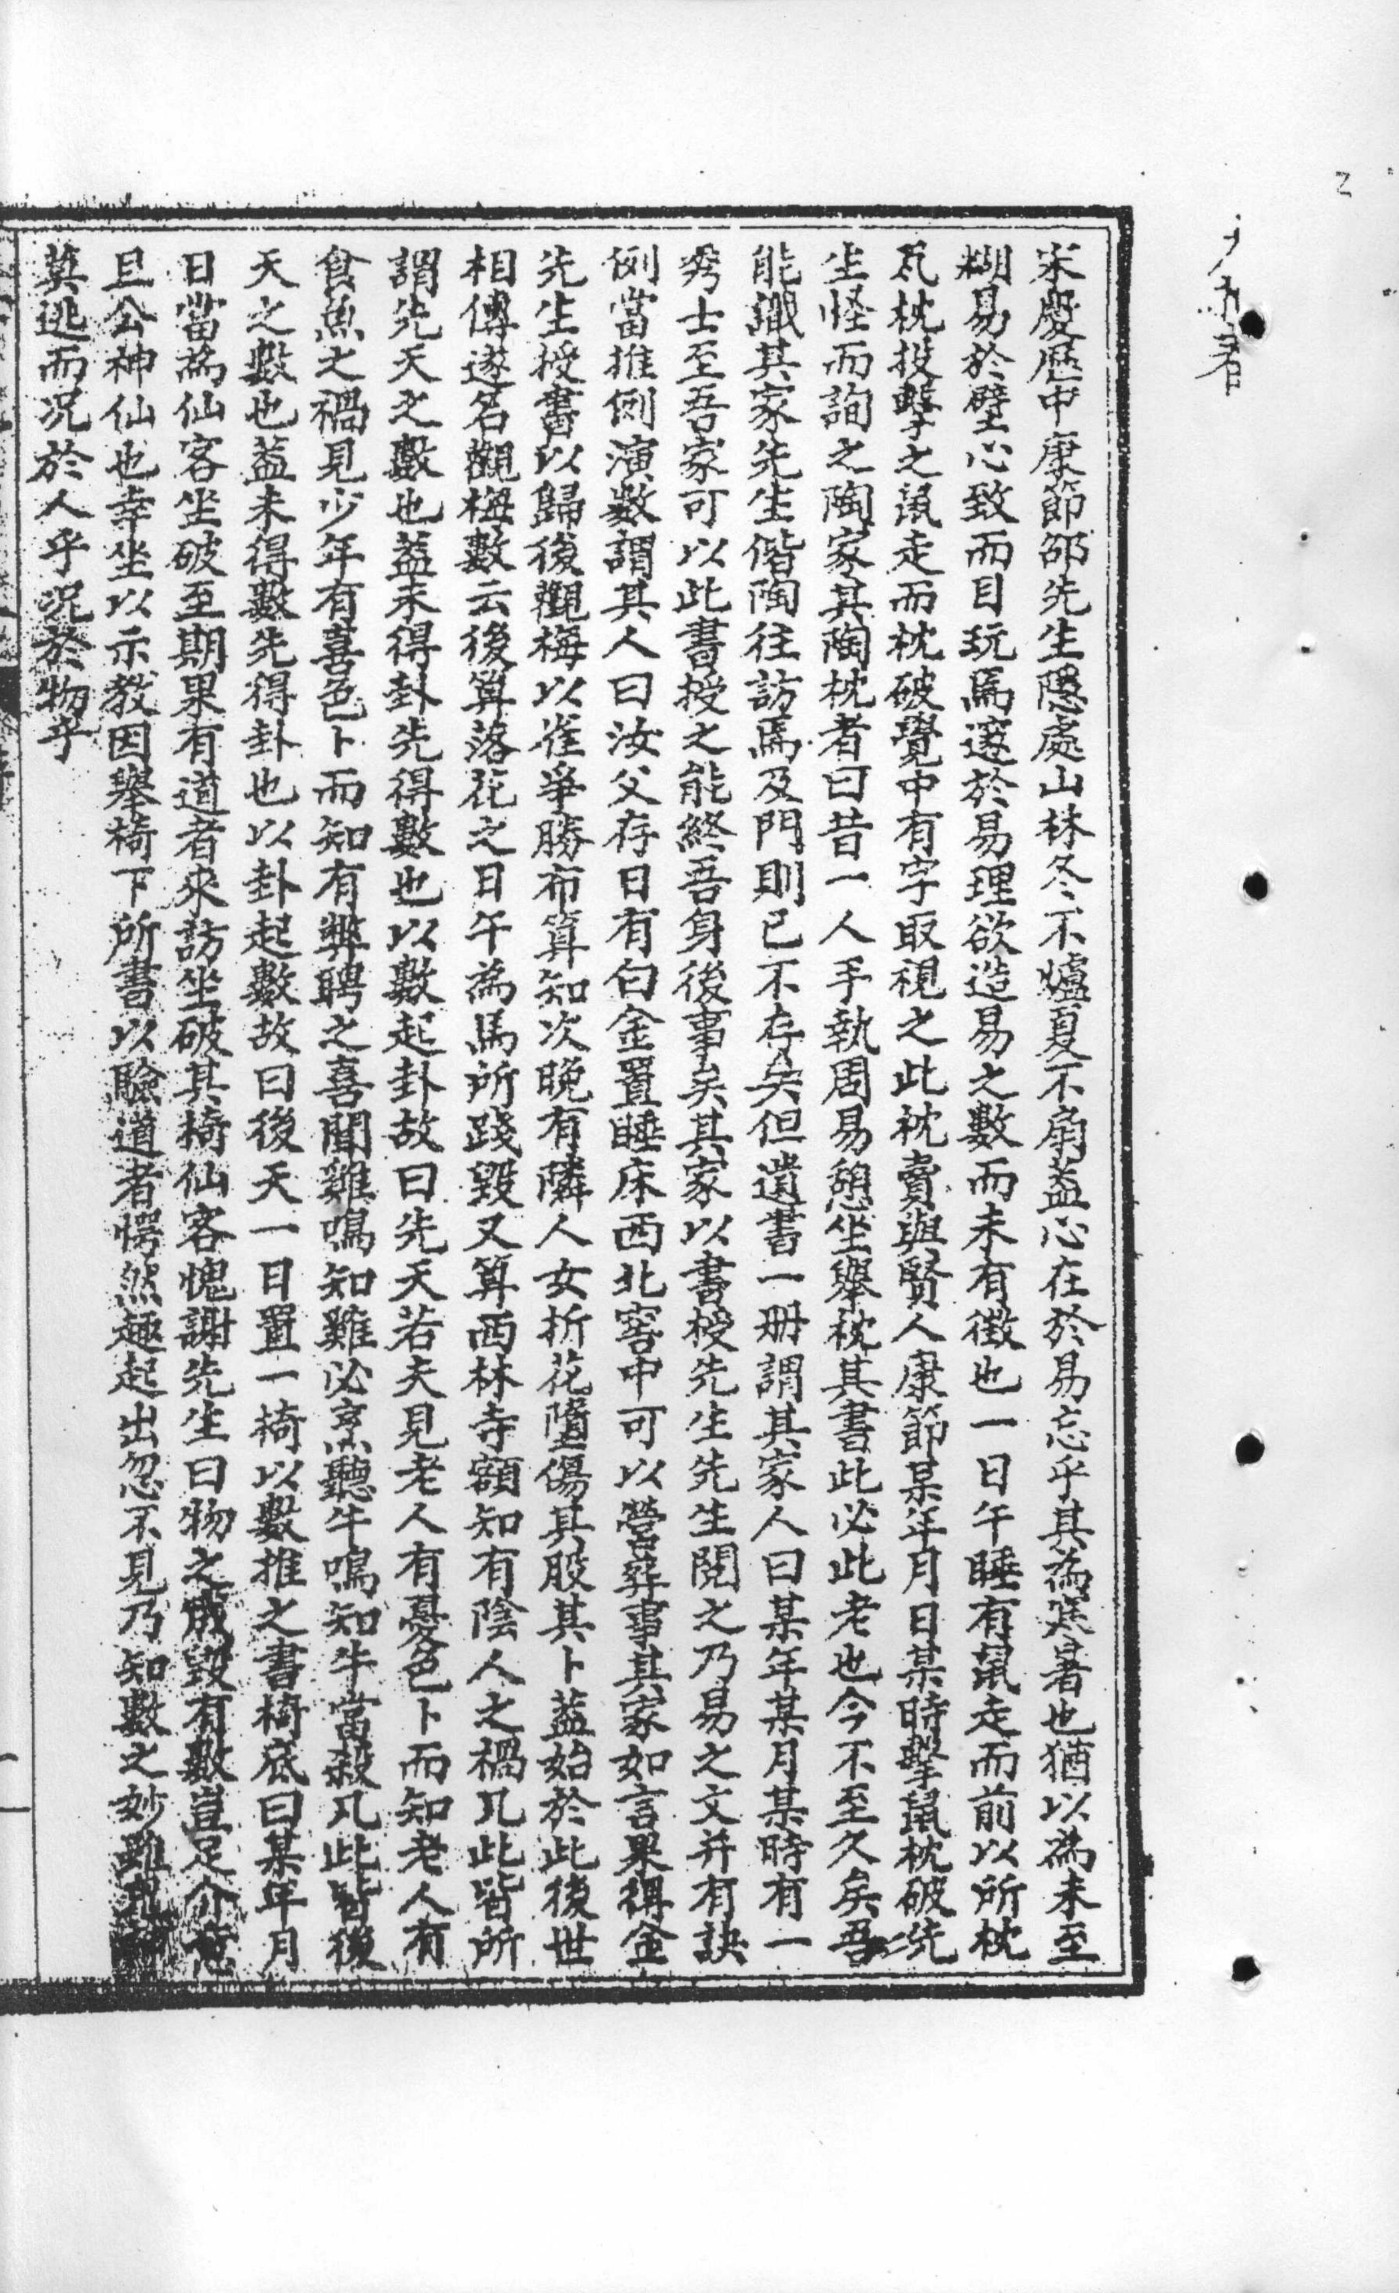 2
宋慶厯中康節邵先生隱處山林冬不爐夏不扇葢心在於易忘乎其為寒暑也猶以為未至
糊易於壁心致而目玩焉邃於易理欲造易之數而未有徵也一日午睡有鼠走而前以所枕
瓦枕投擊之鼠走而枕破覺中有字取視之此枕賣與賢人康節某年月日某時擊鼠枕破先
生怪而詢之陶家其陶枕者曰昔一人手執周易憩坐舉枕其書此必此老也今不至久矣吾
能識其家先生偕陶往訪焉及門則已不存矣但遺書一册謂其家人曰某年某月某時有一
秀士至吾家可以此書授之能終吾身後事矣其家以書授先生先生閱之乃易之文并有訣
例當推例演數謂其人曰汝父存日有白金置睡床西北窖中可以營葬事其家如言果得金
先生授書以歸後觀梅以雀爭勝布算知次晚有隣人女折花墮傷其股其卜葢始於此後世
相傳遂名觀梅數云後算落花之日午為馬所踐毀又算西林寺額知有陰人之禍凡此皆所
謂先天之數也葢未得卦先得數也以數起卦故曰先天若夫見老人有憂色卜而知老人有
食魚之禍見少年有喜色卜而知有幣聘之喜聞雞鳴知雞必烹聽牛鳴知牛當殺凡此皆後
天之數也葢未得數先得卦也以卦起數故曰後天一日置一椅以數推之書椅底曰某年月
日當為仙客坐破至期果有道者來訪坐破其椅仙客愧謝先生曰物之成毀有數豈足介意
且公神仙也幸坐以示教因舉椅下所書以驗道者愕然趣起出忽不見乃知數之妙雖鬼神
莫逃而况於人乎况於物乎